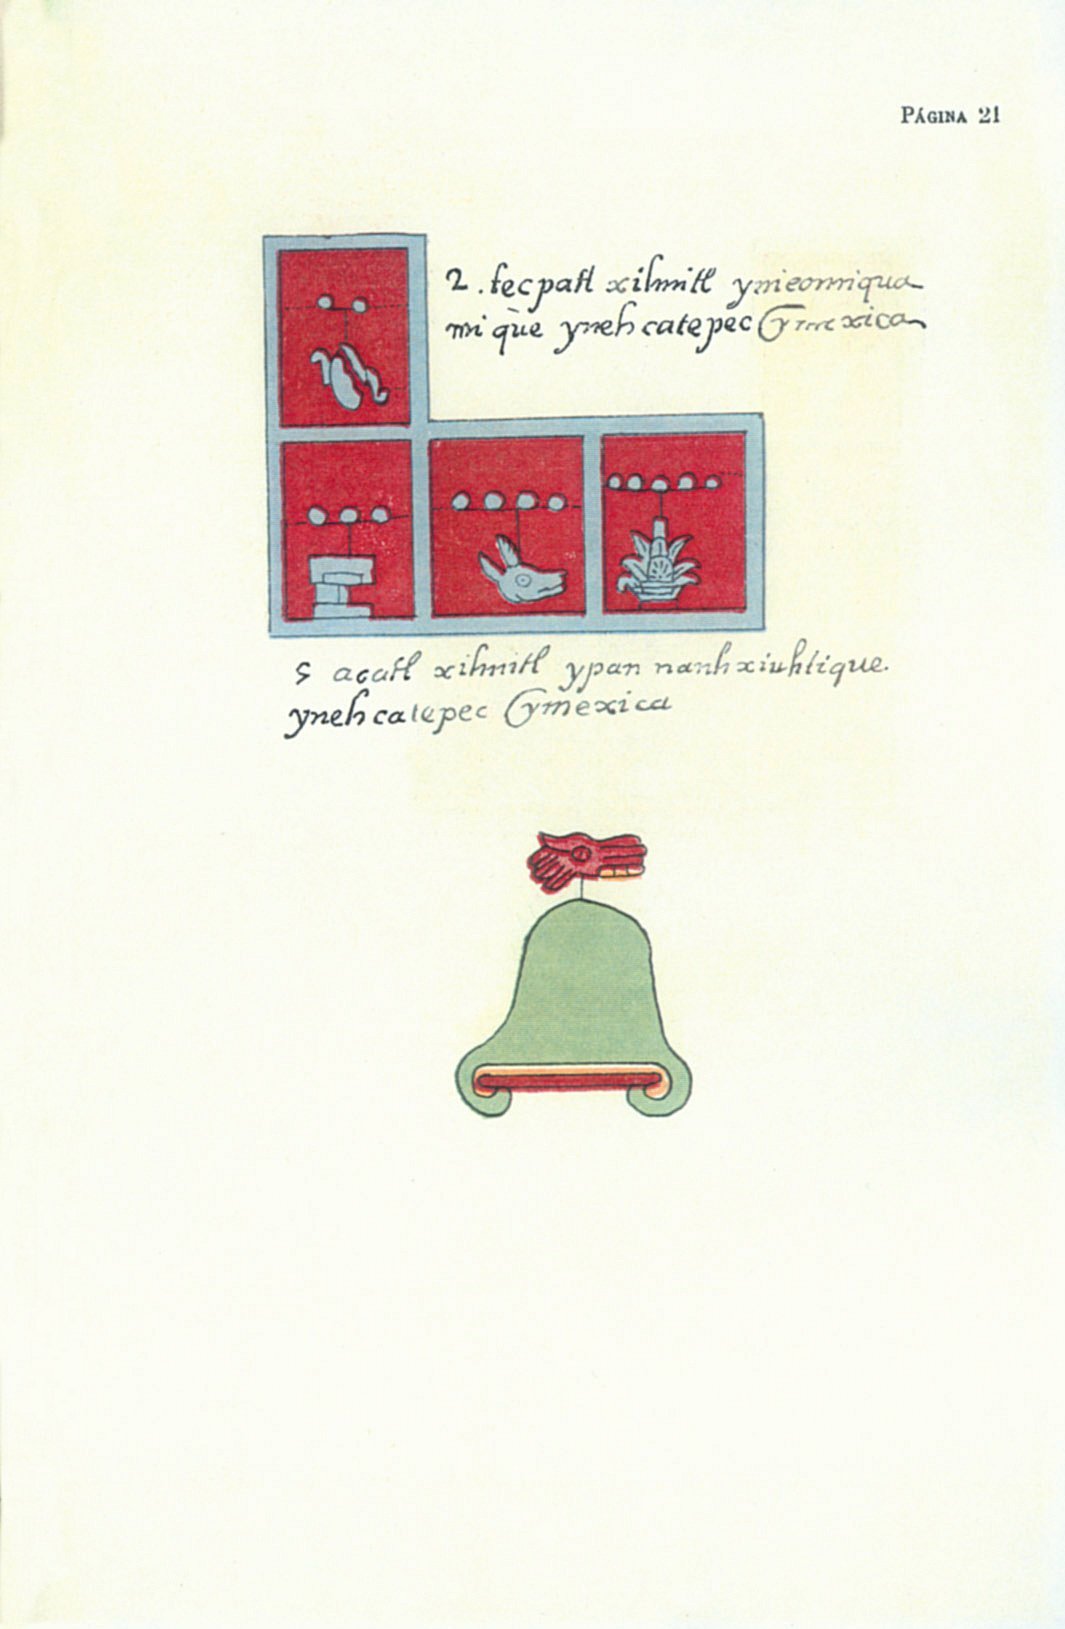 PÁGINA 21
2. tecpatl xihuitl ynicomiqua
mi que yneh catepec Cymexica
5 acatl xihuitl ypan nauhxiuhtique.
yneh catepec Cymexica